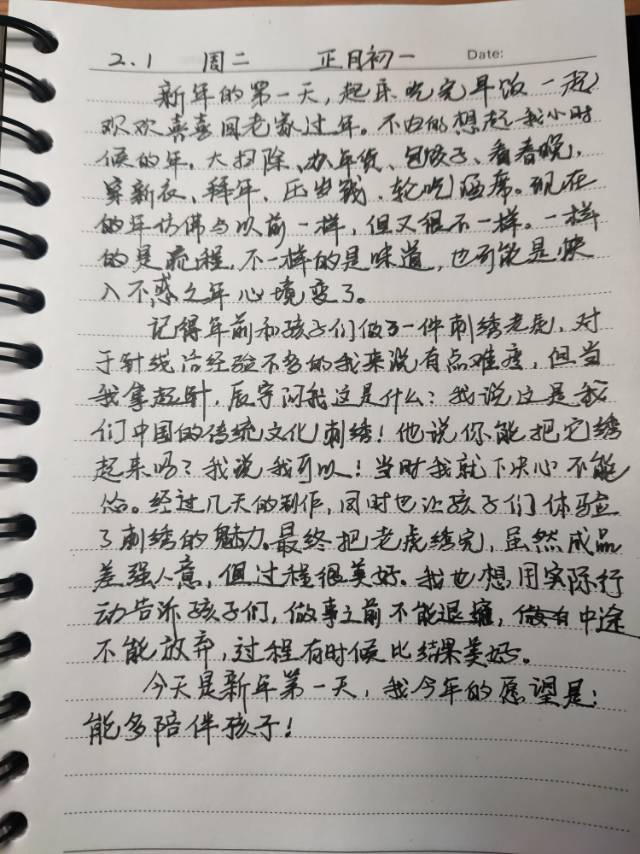 2.1 周二 正月初一 Date:
新年的第一天，起床吃完早饭一起
欢欢喜喜回老家过年。不由的想起我小时
候的年。大扫除、办年货、包饺子、看春晚，
穿新衣、拜年、压岁钱、轮吃酒席。现在
的年仿佛与以前一样，但又很不一样。一样
的是流程，不一样的是味道，也可能是快
入不惑之年心境变了。
记得年前和孩子们做了一件刺绣老虎，对
于针线活经验不多的我来说有点难度，但当
我拿起针，辰宇问我这是什么？我说这是我
们中国的传统文化刺绣！他说你能把它绣
起来吗？我说我可以！当时我就下决心不能
怂。经过几天的制作，同时也让孩子们体验
了刺绣的魅力。最终把老虎绣完，虽然成品
差强人意，但过程很美好。我也想用实际行
动告诉孩子们，做事之前不能退缩，中途
不能放弃，过程有时候比结果美好。
今天是新年第一天，我今年的愿望是：
能多陪伴孩子！